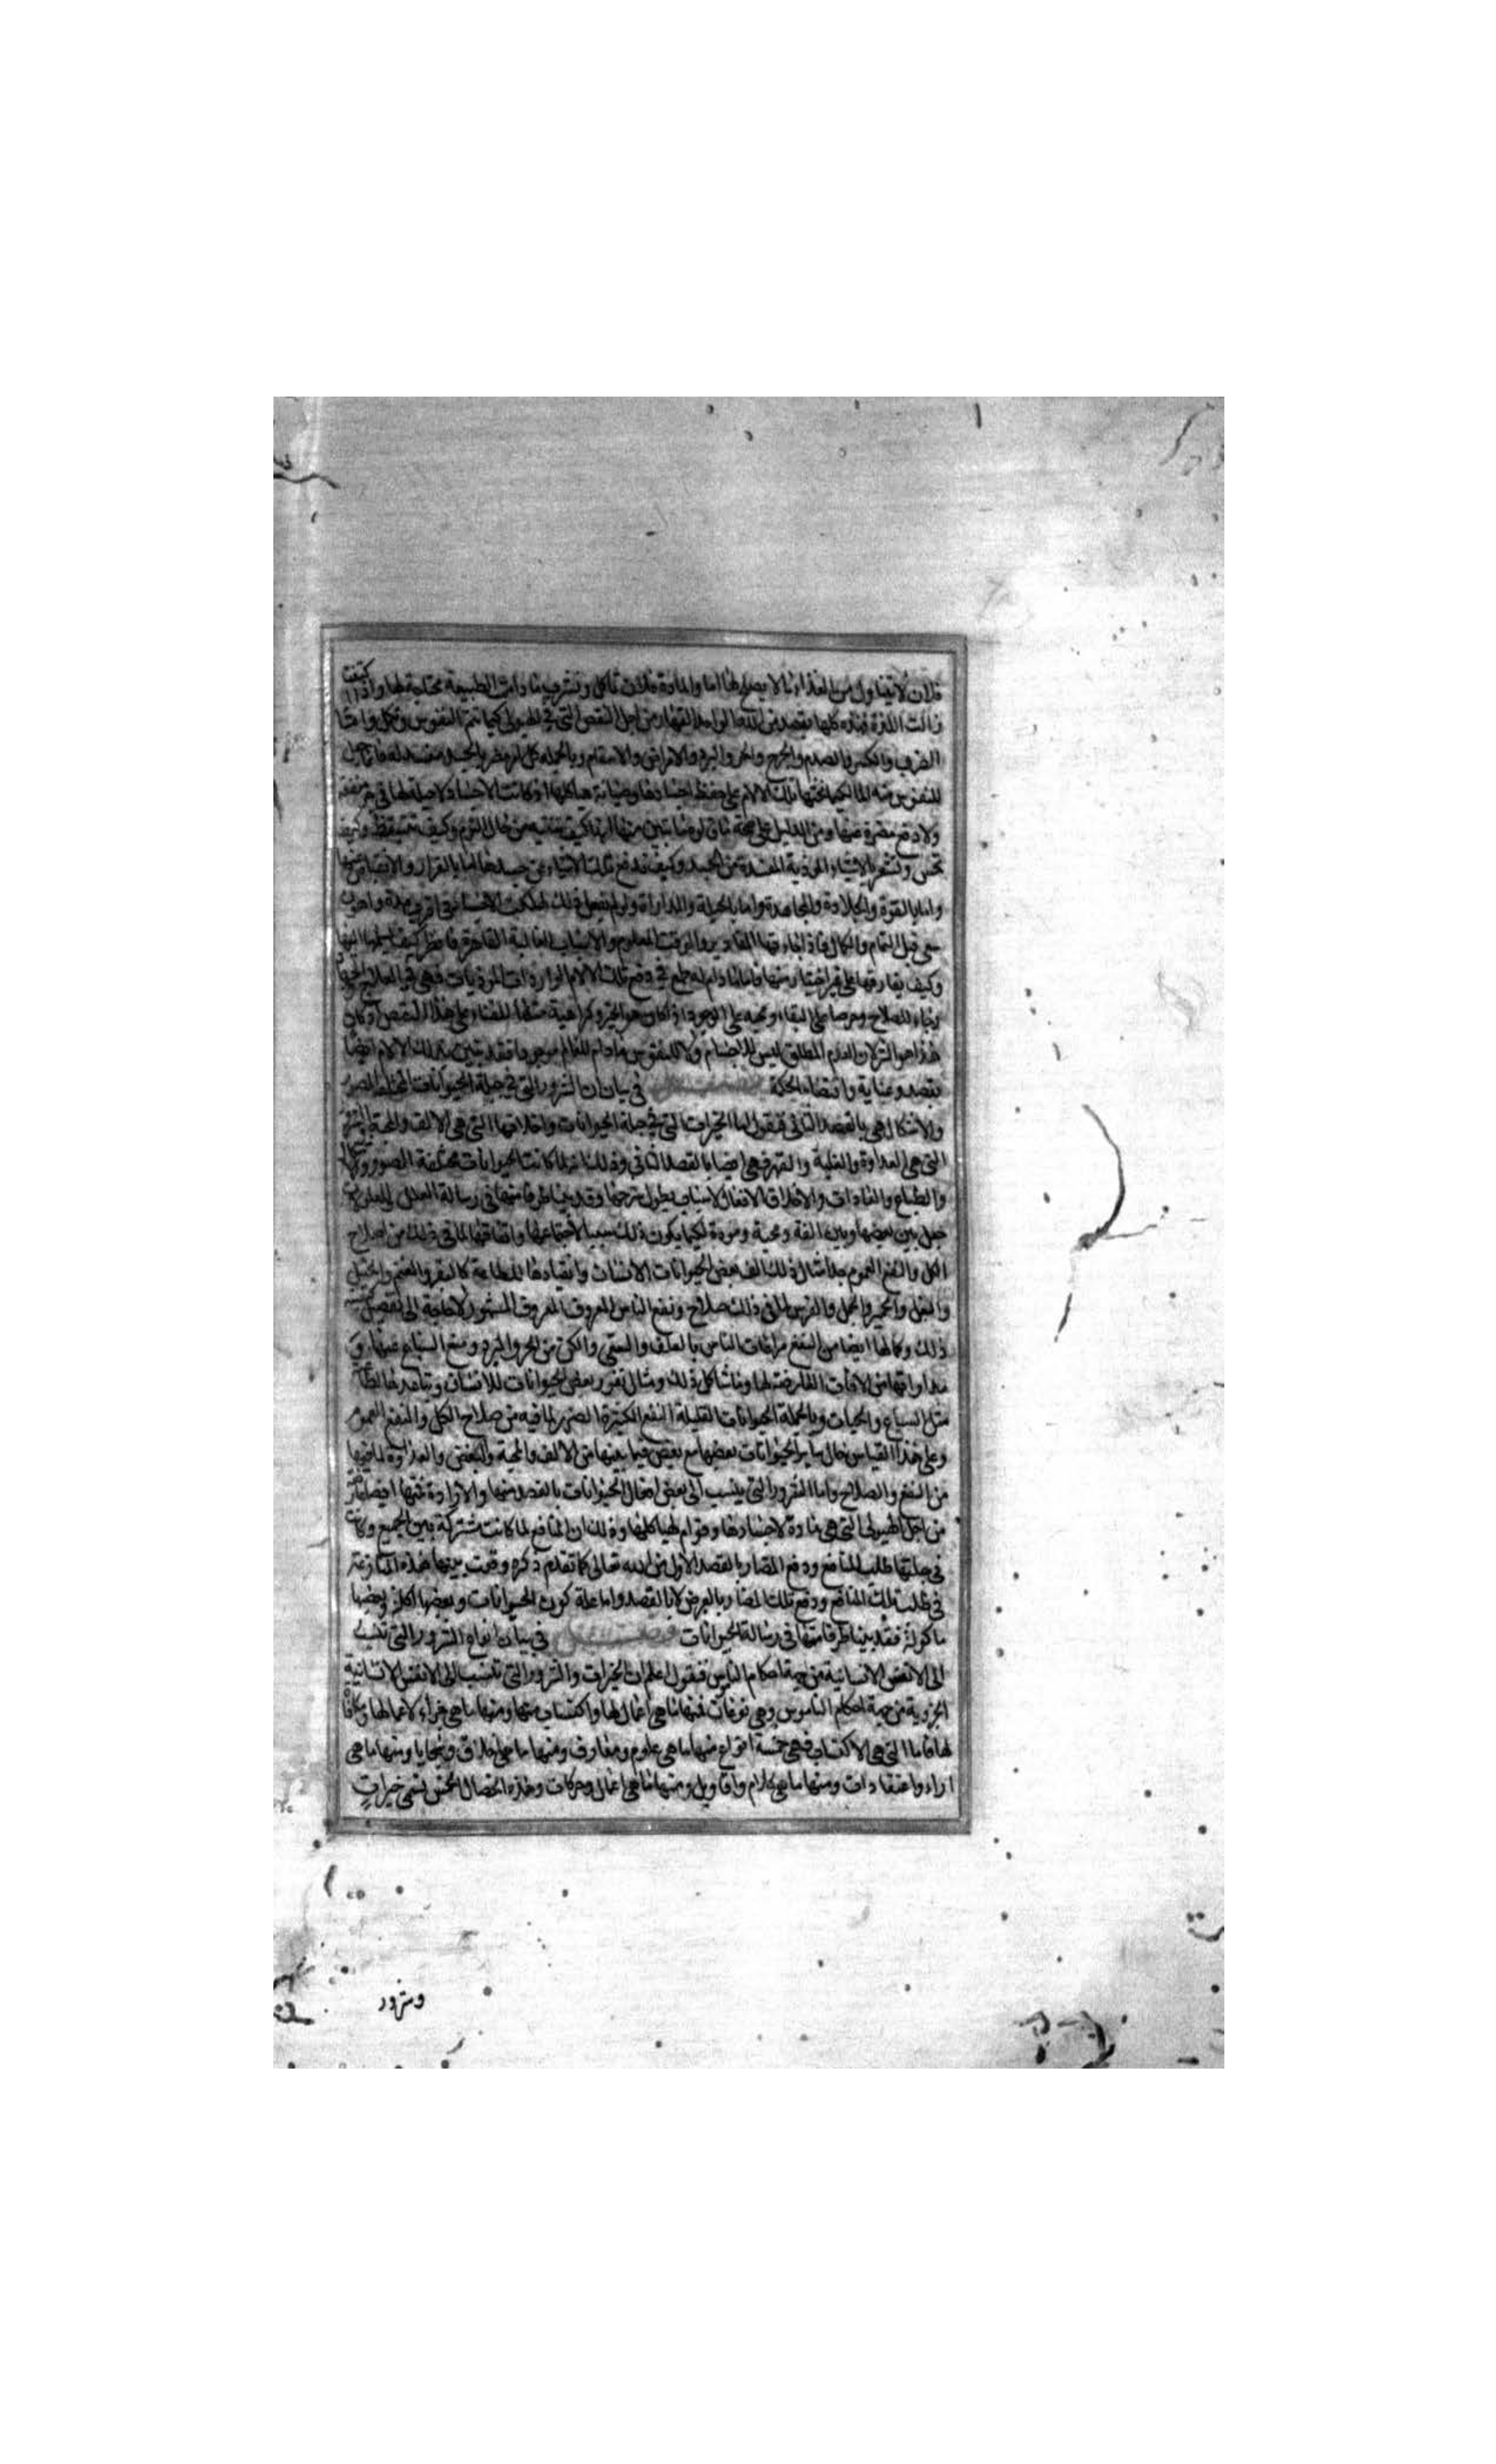 فلان لا يتناول من الغذاء ما لا يصلح لها اما والمادة فلان تاكل وتشرب ما دامت الطبيعة محتاجة لها واذا اكتفت
زالت اللذة فهذه كلها بقصد من الله الواحد القهار من اجل النقص التي في الهيولى كيما تتم النفوس وتكمل واما
الضرب والكسر والصدم والجرح والحر والبرد والامراض والاسقام وبالجملة كل
للنفوس الما لكيما تحثها تلك الالام على حفظ اجسادها وصيانة هياكلها اذ كانت الاجساد لا حيلة لها في جر منفعة
ولا دفع مضرة عنها ومن الدليل على صحة ما قلنا تبين منها انها كيف تنتبه من حال النوم وكيف تستيقظ وكيف
تحس وتشعر بالاشياء الموذية المفسدة من الجسد وكيف تدفع تلك الاشياء عن جسدها اما بالفرار والانقباض منها
واما بالقوة والجلادة والمجاهدة واما بالحيلة والمداراة ولو لم تفعل ذلك لهلكت الاجساد في اقرب مدة واهون
سعى قبل التمام والكمال فاذا فاءرقها المقادير والوقت المعلوم والاسباب الغالبة القاهرة فانظر كيف تسلمها اليها
وكيف يفارقها على غير اختيار منها فاما ما دام له طمع في دفع تلك الالام الواردات الموذيات فهي في العلاج
رجاء للصلاح وحرصا على البقاء ومحبة على الوجود اذ كان هو الخير وكراهية منها للفناء على هذا الشخص اذ كان
هذا هو الشر لان العدم المطلق ليس للاجسام ولا للنفوس ما دام العالم موجودا فقد تبين بذلك الالام ايضا
بقصد وعناية واقتضاء الحكمة في بيان ان الشرور التي في جبلة الحيوانات المختلفة الصور
والاشكال هي بالقصد الثاني فنقول اما الخيرات التي في جبلة الحيوانات واخلاقها التي هي الالف والمحبة
التي هي العداوة والغلبة والقهر فهي ايضا بالقصد الثاني وذلك انه لما كانت الحيوانات مختلفة الصور
والطباع والعادات والاخلاق والافعال لاسباب يطول شرحها وقد بينا طرفا منها في رسالة العلل والمعلولات
جعل بين بعضها وبين الفة ومحبة ومودة لكيما يكون ذلك سببا لاجتماعها واتفاقها لما في ذلك من صلاح
الكل والنفع العموم مثال ذلك الف بعض الحيوانات الانسان وانقيادها للطاعة كالبقر والغنم والخيل
والبغل والحمير والجمل والفرس لما في ذلك صلاح ونفع الناس المعروف المعروف المشهور لا حاجة الى تفصيل
ذلك وكما لها ايضا من النفع مراعات الناس بالعلف والسقي والكن من الحر والبرد ومنع السباع عنها و
مداواتها من الافات العارضة لها وما شاكل ذلك ومثال نفور بعض الحيوانات للانسان وتباعدها
مثل السباع والحيات وبالجملة الحيوانات القليلة النفع الكثيرة الضرر لما فيه من صلاح الكل والنفع العموم
وعلى هذا القياس حال ساير الحيوانات بعضها مع بعض فيما بينها من الالف والمحبة والبغض والعداوة لما فيها
من النفع والصلاح واما الشرور التي ينسب الى بعض افعال الحيوانات بالقصد منها والارادة فمنها ايضا
من اجل الهيولى التي هي مادة لاجسادها وقوام لهياكلها وذلك ان المنافع لما كانت مشتركة بين الجميع وكانت
في جبلتها طلب المنافع ودفع المضار بالقصد الاول من الله تعالى كما تقدم ذكره وقعت بينها هذه المنازعة
في طلب تلك المنافع ودفع تلك المضار بالعرض لا بالقصد واما علة كون الحيوانات وبعضها اكلة وبعضها
ماكولة فقد بينا طرفا منها في رسالة الحيوانات في بيان انواع الشرور التي تنسب
الى الانفس الانسانية من جهة احكام الناموس فنقول اعلم ان الخيرات والشرور التي تنسب الى الانفس الانسانية
الجزوية من جهة احكام الناموس وهي نوعان فمنها ما هي اعمال لها واكتساب منها ومنها ما هي جزاء لاعمالها ومكافاة
لها فاما التي هي الاكتساب فهي خمسة انواع منها ما هي علوم ومعارف ومنها ما هي اخلاق وسجايا ومنها ما هي
اراء واعتقادات ومنها ما هي كلام واقاويل ومنها ما هي اعمال وحركات وهذه الخصال الخمس يسمى خيرات
وشرور